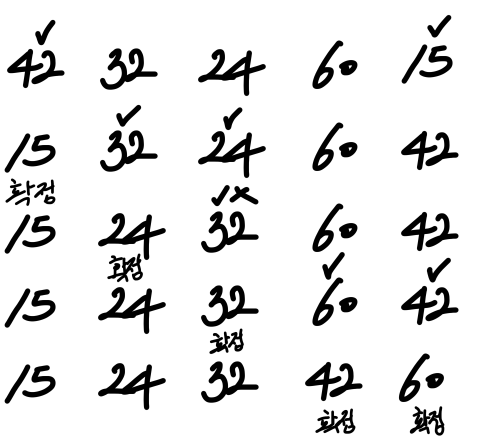 42 32 24 60 15
15 32 24 60 42
확정
15 24 32 60 42
확정
15 24 32 60 42
확정
15 24 32 42 60
확정 확정